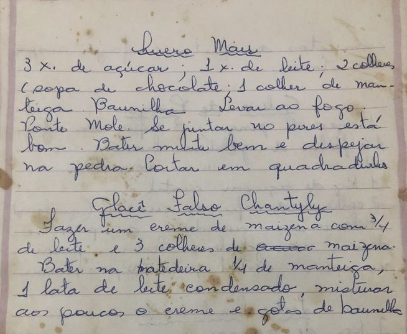 Quero Mais
3 x. de açúcar; 1 x. de leite; 2 colheres
(sopa de chocolate; 1 colher de man-
teiga Baunilha. Levar ao fogo.
Ponto Mole. Se juntar no pires está
bom. Bater muito bem e despejar
na pedra. Cortar em quadradinhos
Glacê Falso Chantyly
Fazer um creme de maizena com 3/4
de leite e 3 colheres de maizena.
Bater na batedeira 1/4 de manteiga,
1 lata de leite condensado, misturar
aos poucos o creme e gotas de baunilha